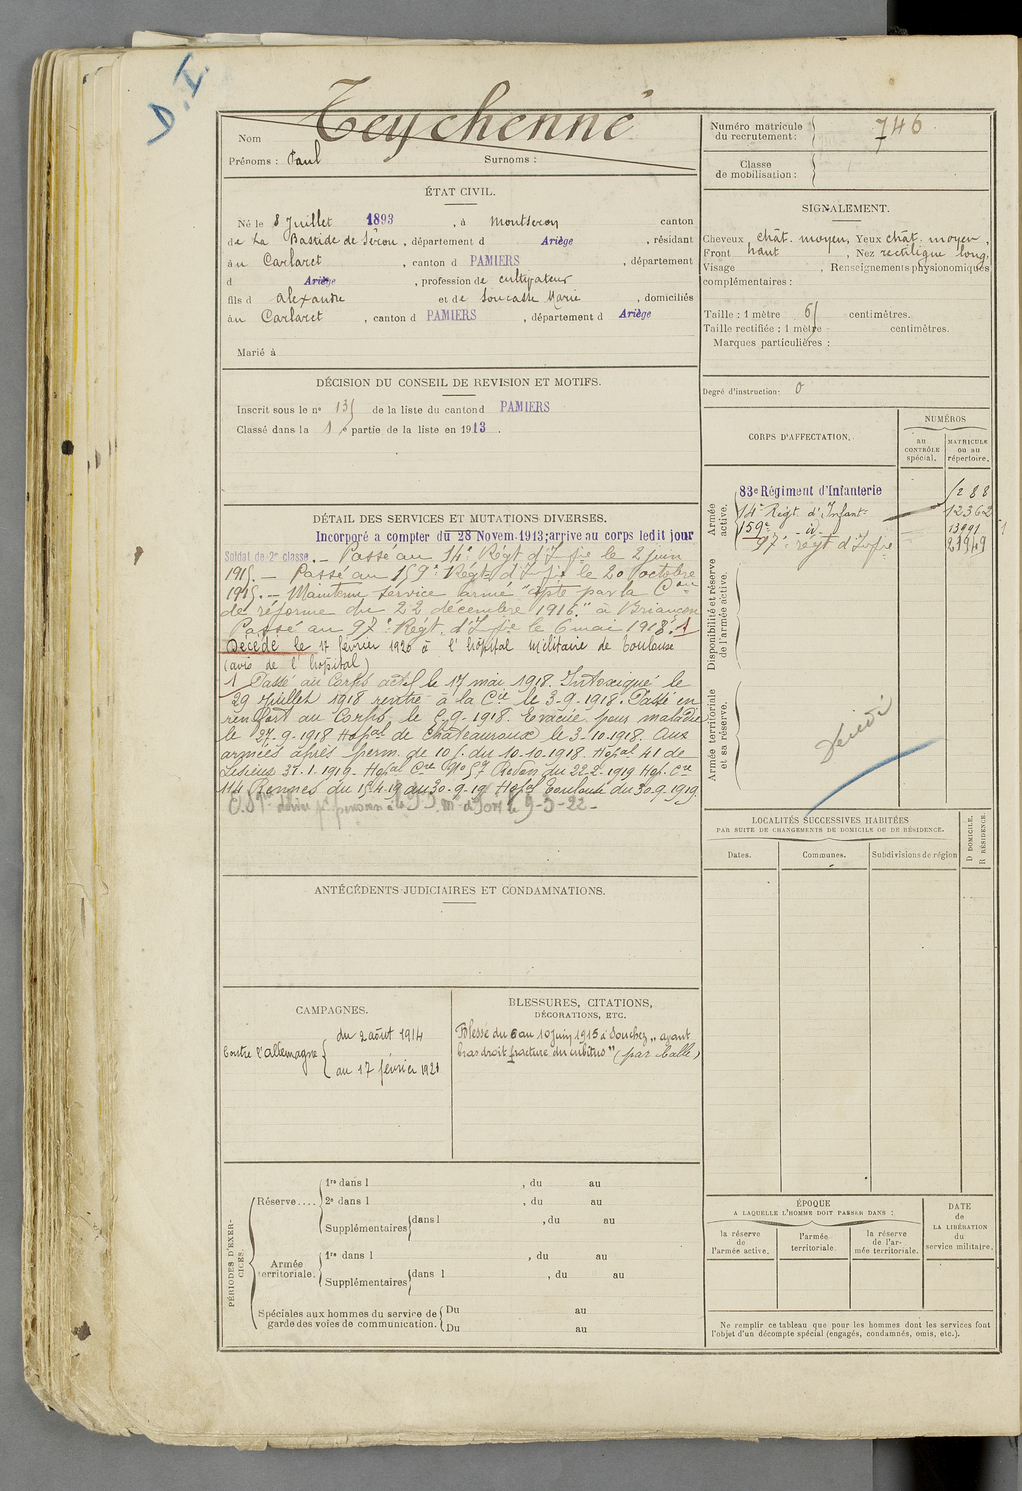 D. I.
Nom Teychenné
Prénoms : Paul Surnoms :
ÉTAT CIVIL.
Né le 8 Juillet 1893, à Montseron canton
de La Bastide de Sérou, département d Ariège, résidant
à u Carlaret, canton d PAMIERS, département
d Ariège, profession de cultivateur
fils d alexandre et de Soucasse Marie, domiciliés
à u Carlaret, canton d PAMIERS, département d Ariège
Marié à
DÉCISION DU CONSEIL DE REVISION ET MOTIFS.
Inscrit sous le n° 135 de la liste du canton d PAMIERS
Classé dans la 1e partie de la liste en 1913.
DÉTAIL DES SERVICES ET MUTATIONS DIVERSES.
Incorporé a compter du 28 Novem. 1913; arrive au corps ledit jour
Soldat de 2e classe. — Passé au 14e Régt d'Infie le 2 juin
1915. — Passé au 159e Régt d'Infie le 20 octobre
1915. — Maintenu service armé "apte" par la Con
de réforme du 22 décembre 1916." à Briançon
Passé au 97e Régt. d'Infie le 6 mai 1918. 1
Décédé le 17 février 1920 à l'hôpital militaire de Toulouse
(avis de l'hôpital)
1 Passé au Corps actif le 17 mai 1918. Intoxiqué le
29 Juillet 1918 rentré à la Cie le 3-9-1918. Passé en
renfort au Corps, le 5-9-1918. Evacué pour maladie
le 27-9-1918 Hopal de Chateauroux le 3-10-1918. Aux
armées après perm. de 10 j. du 10-10-1918. Hopal 41 de
Lisieux 31-1-1919. Hopal Cre No 57 Redon du 22-2-1919 Hop. Cre
114 Rennes du 15-4-19 au 30-9-19 Hopal Toulouse du 30-9-1919.
9-5-22 -
ANTÉCÉDENTS JUDICIAIRES ET CONDAMNATIONS.
CAMPAGNES.
Contre l'allemagne
du 2 août 1914
au 17 février 1920
BLESSURES, CITATIONS,
DÉCORATIONS, ETC.
Blessé du 6 au 10 juin 1915 à Souchez, "avant
bras droit fracture du cubitus" (par balle)
PÉRIODES D'EXERCICES.
Réserve....
1re dans l , du au
2e dans l , du au
Supplémentaires dans l , du au
Armée territoriale.
1re dans l , du au
Supplémentaires dans l , du au
Spéciales aux hommes du service de garde des voies de communication.
Du au
Du au
Numéro matricule du recrutement : 746
Classe de mobilisation :
SIGNALEMENT.
Cheveux chât. moyen, Yeux chât. moyen,
Front haut, Nez rectiligne long.
Visage , Renseignements physionomiques
complémentaires :
Taille : 1 mètre 65 centimètres.
Taille rectifiée : 1 mètre centimètres.
Marques particulières :
Degré d'instruction : 0
CORPS D'AFFECTATION.
NUMÉROS
au CONTRÔLE spécial.
MATRICULE ou au répertoire.
Armée active.
83e Régiment d'Infanterie 5288
14e Régt d'Infant. 12362
159e - id - 13991
97e régt d'Infie 21949
Disponibilité et réserve de l'armée active.
Armée territoriale et sa réserve.
LOCALITÉS SUCCESSIVES HABITÉES
PAR SUITE DE CHANGEMENTS DE DOMICILE OU DE RÉSIDENCE.
Dates. Communes. Subdivisions de région
D DOMICILE.
R RÉSIDENCE.
ÉPOQUE
A LAQUELLE L'HOMME DOIT PASSER DANS :
la réserve de l'armée active.
l'armée territoriale.
la réserve de l'armée territoriale.
DATE de LA LIBÉRATION du service militaire.
Ne remplir ce tableau que pour les hommes dont les services font
l'objet d'un décompte spécial (engagés, condamnés, omis, etc.).